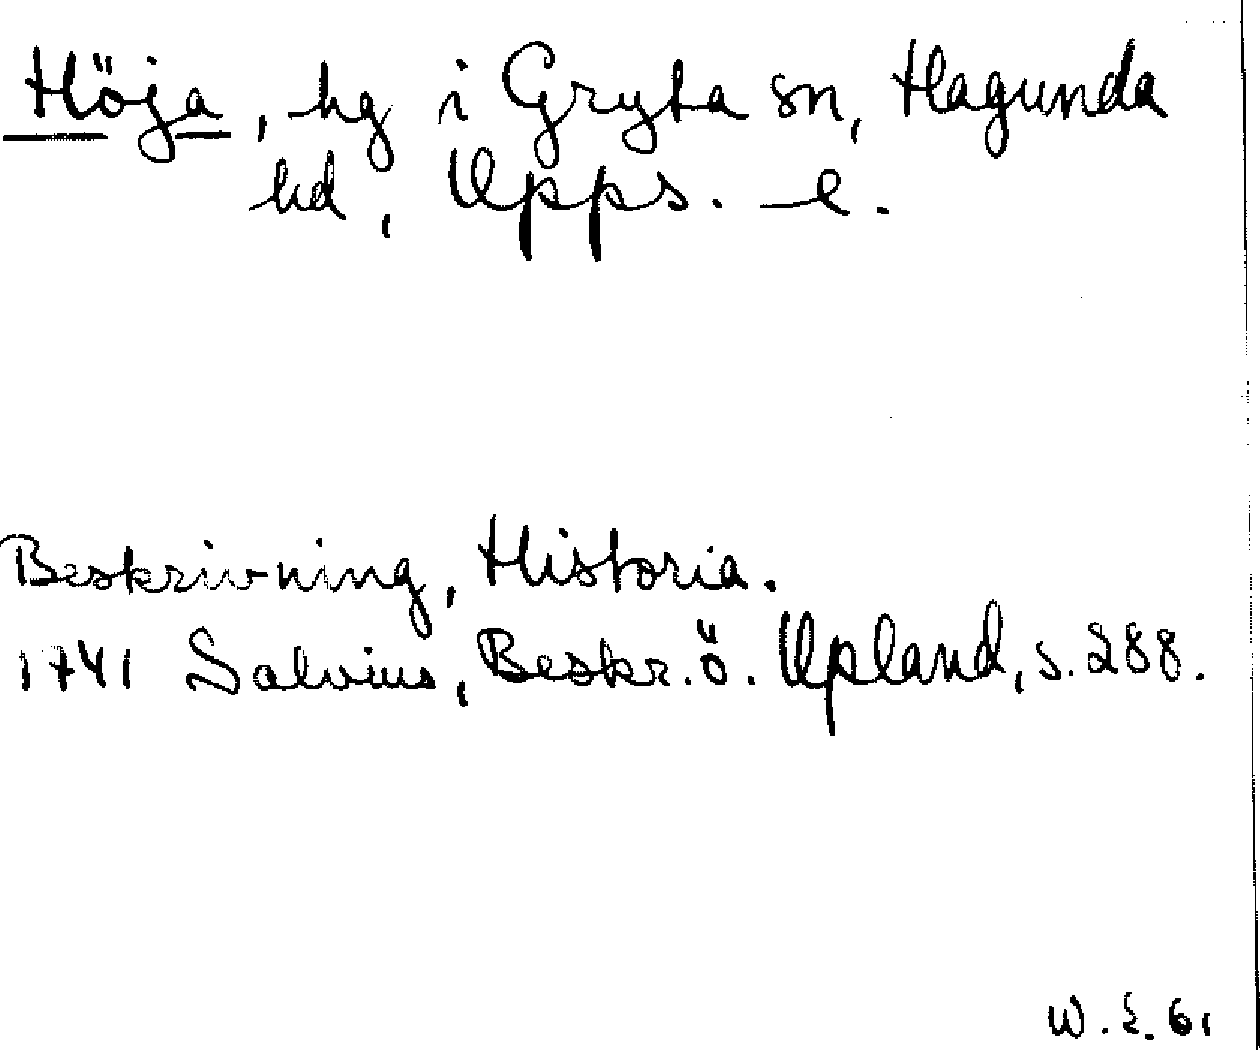 Höja, hg i Gryta sn, Hagunda
hd, Upps. l.
Beskrivning, Historia.
1741 Salvius, Beskr. ö. Upland, s. 288.
W. E. 61